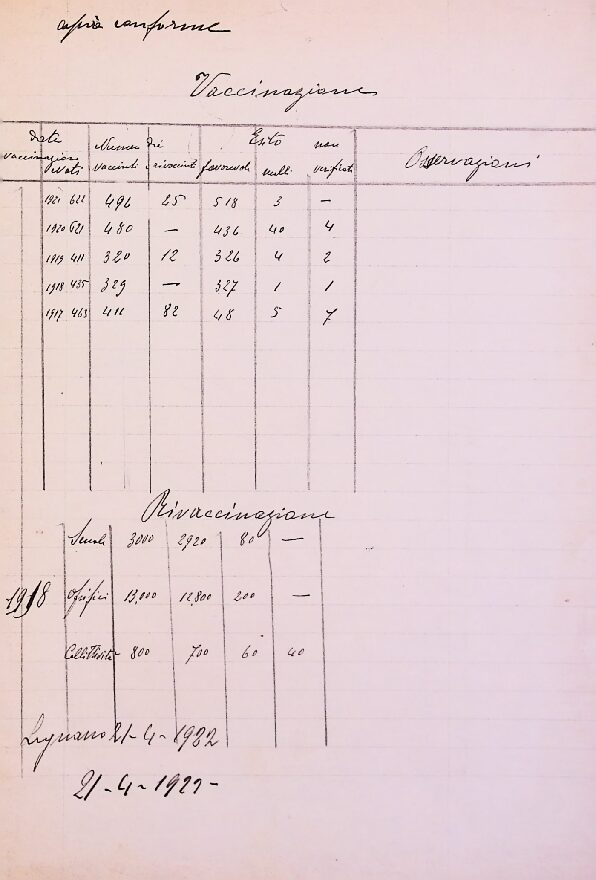 copia conforme
Vaccinazione
Date vaccinazioni Nevati Numero dei vaccinati rivaccinati Esito favorevoli nulli non verificati Osservazioni
1921 622 496 25 518 3 —
1920 621 480 — 436 40 4
1919 411 320 12 326 4 2
1918 435 329 — 327 1 1
1917 463 411 82 48 5 7
Rivaccinazione
Scuole 3000 2920 80 —
1918 Opifici 13,000 12,800 200 —
Collettività 800 700 60 40
Legnano 21-4-1922
21-4-1922-